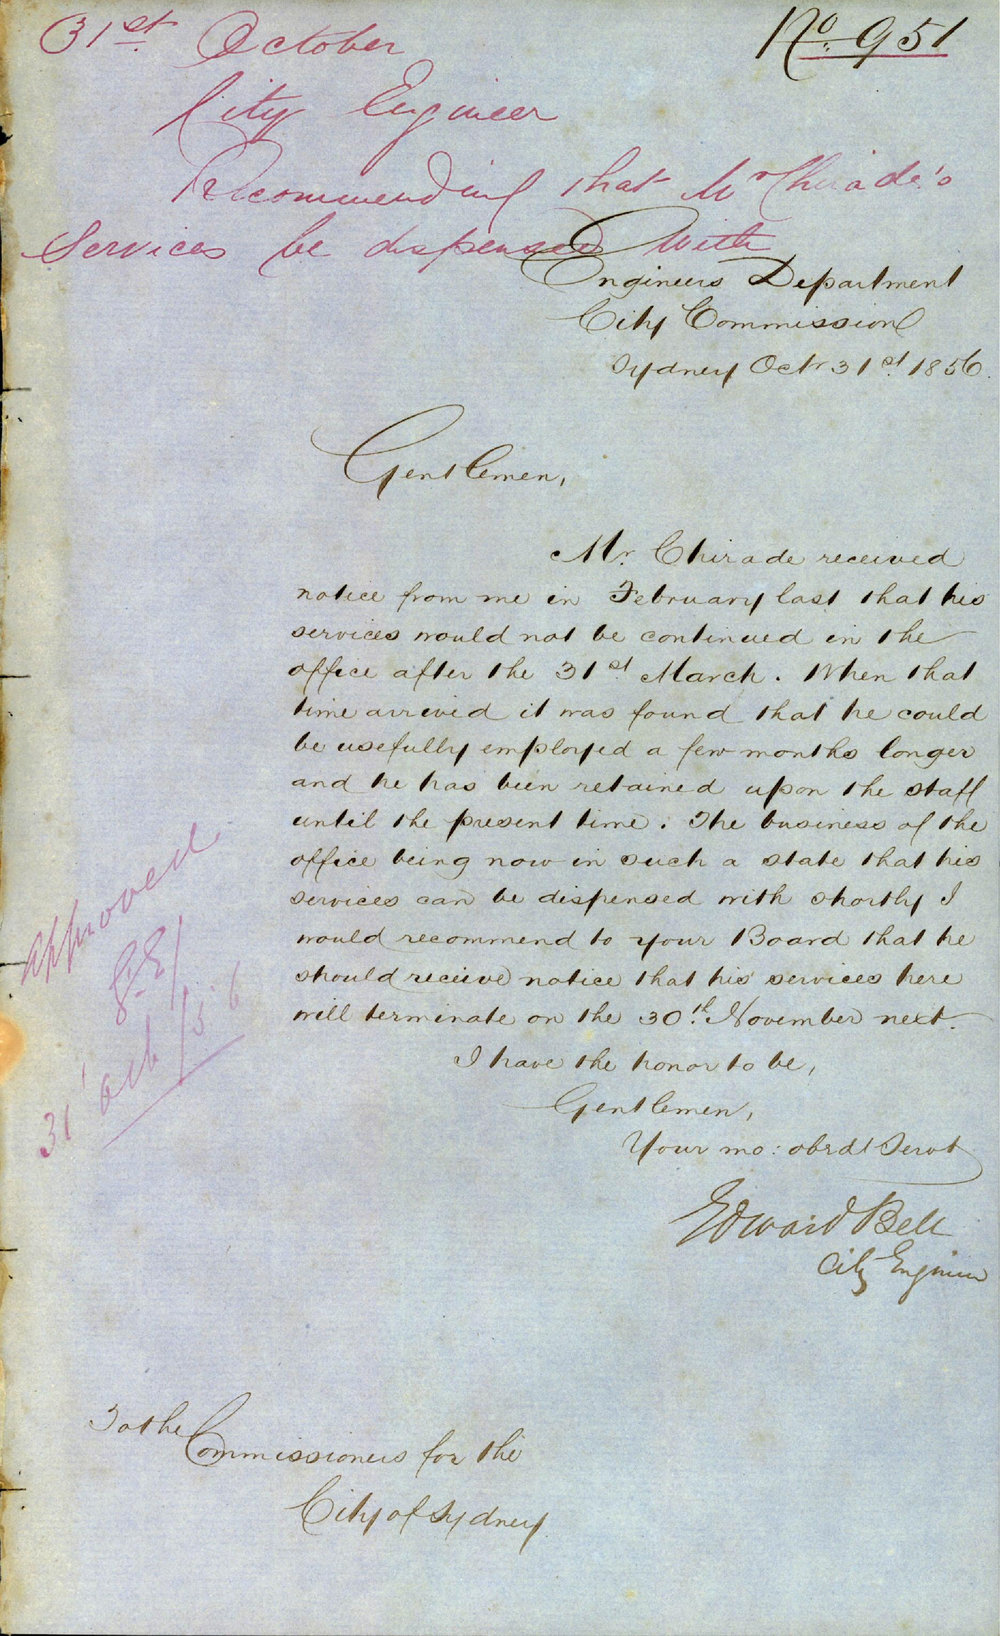 31st October
No. 951
City Engineer
Recommending that Mr Chirade's
Services be dispensed with
Engineers Department
City Commission
Sydney Octr 31st. 1856.
Gentlemen,
Mr. Chirade received
notice from me in February last that his
services would not be continued in the
office after the 31st March. When that
time arrived it was found that he could
be usefully employed a few months longer
and he has been retained upon the staff
until the present time. The business of the
office being now in such a state that his
services can be dispensed with shortly I
would recommend to your Board that he
should receive notice that his services here
will terminate on the 30th. November next.
I have the honor to be,
Gentlemen,
Your mo: obedt Servt
Edward Bell
City Engineer
Approved
31 Octb/56
To the Commissioners for the
City of Sydney.